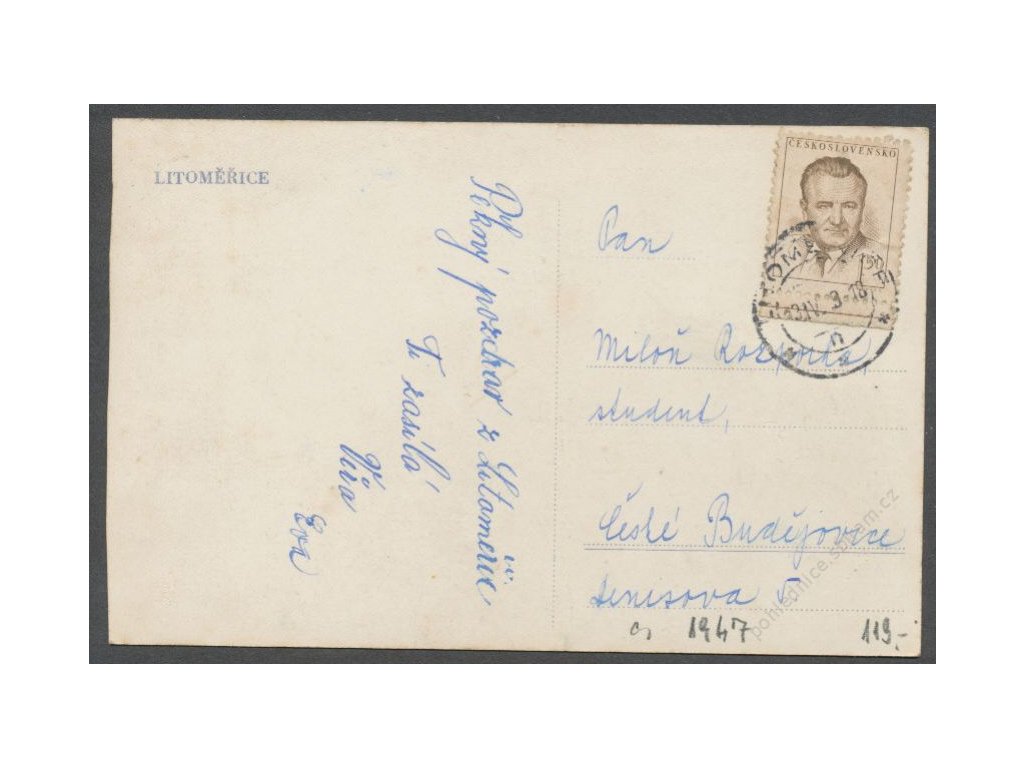 LITOMĚŘICE
Pěkný pozdrav z Litoměřic
Ti zasílá
Věra
Eva
ČESKOSLOVENSKO
Pan
Miloň
student,
České Budějovice
Denisova 5
1947
119,-
pohlednice.sberam.cz